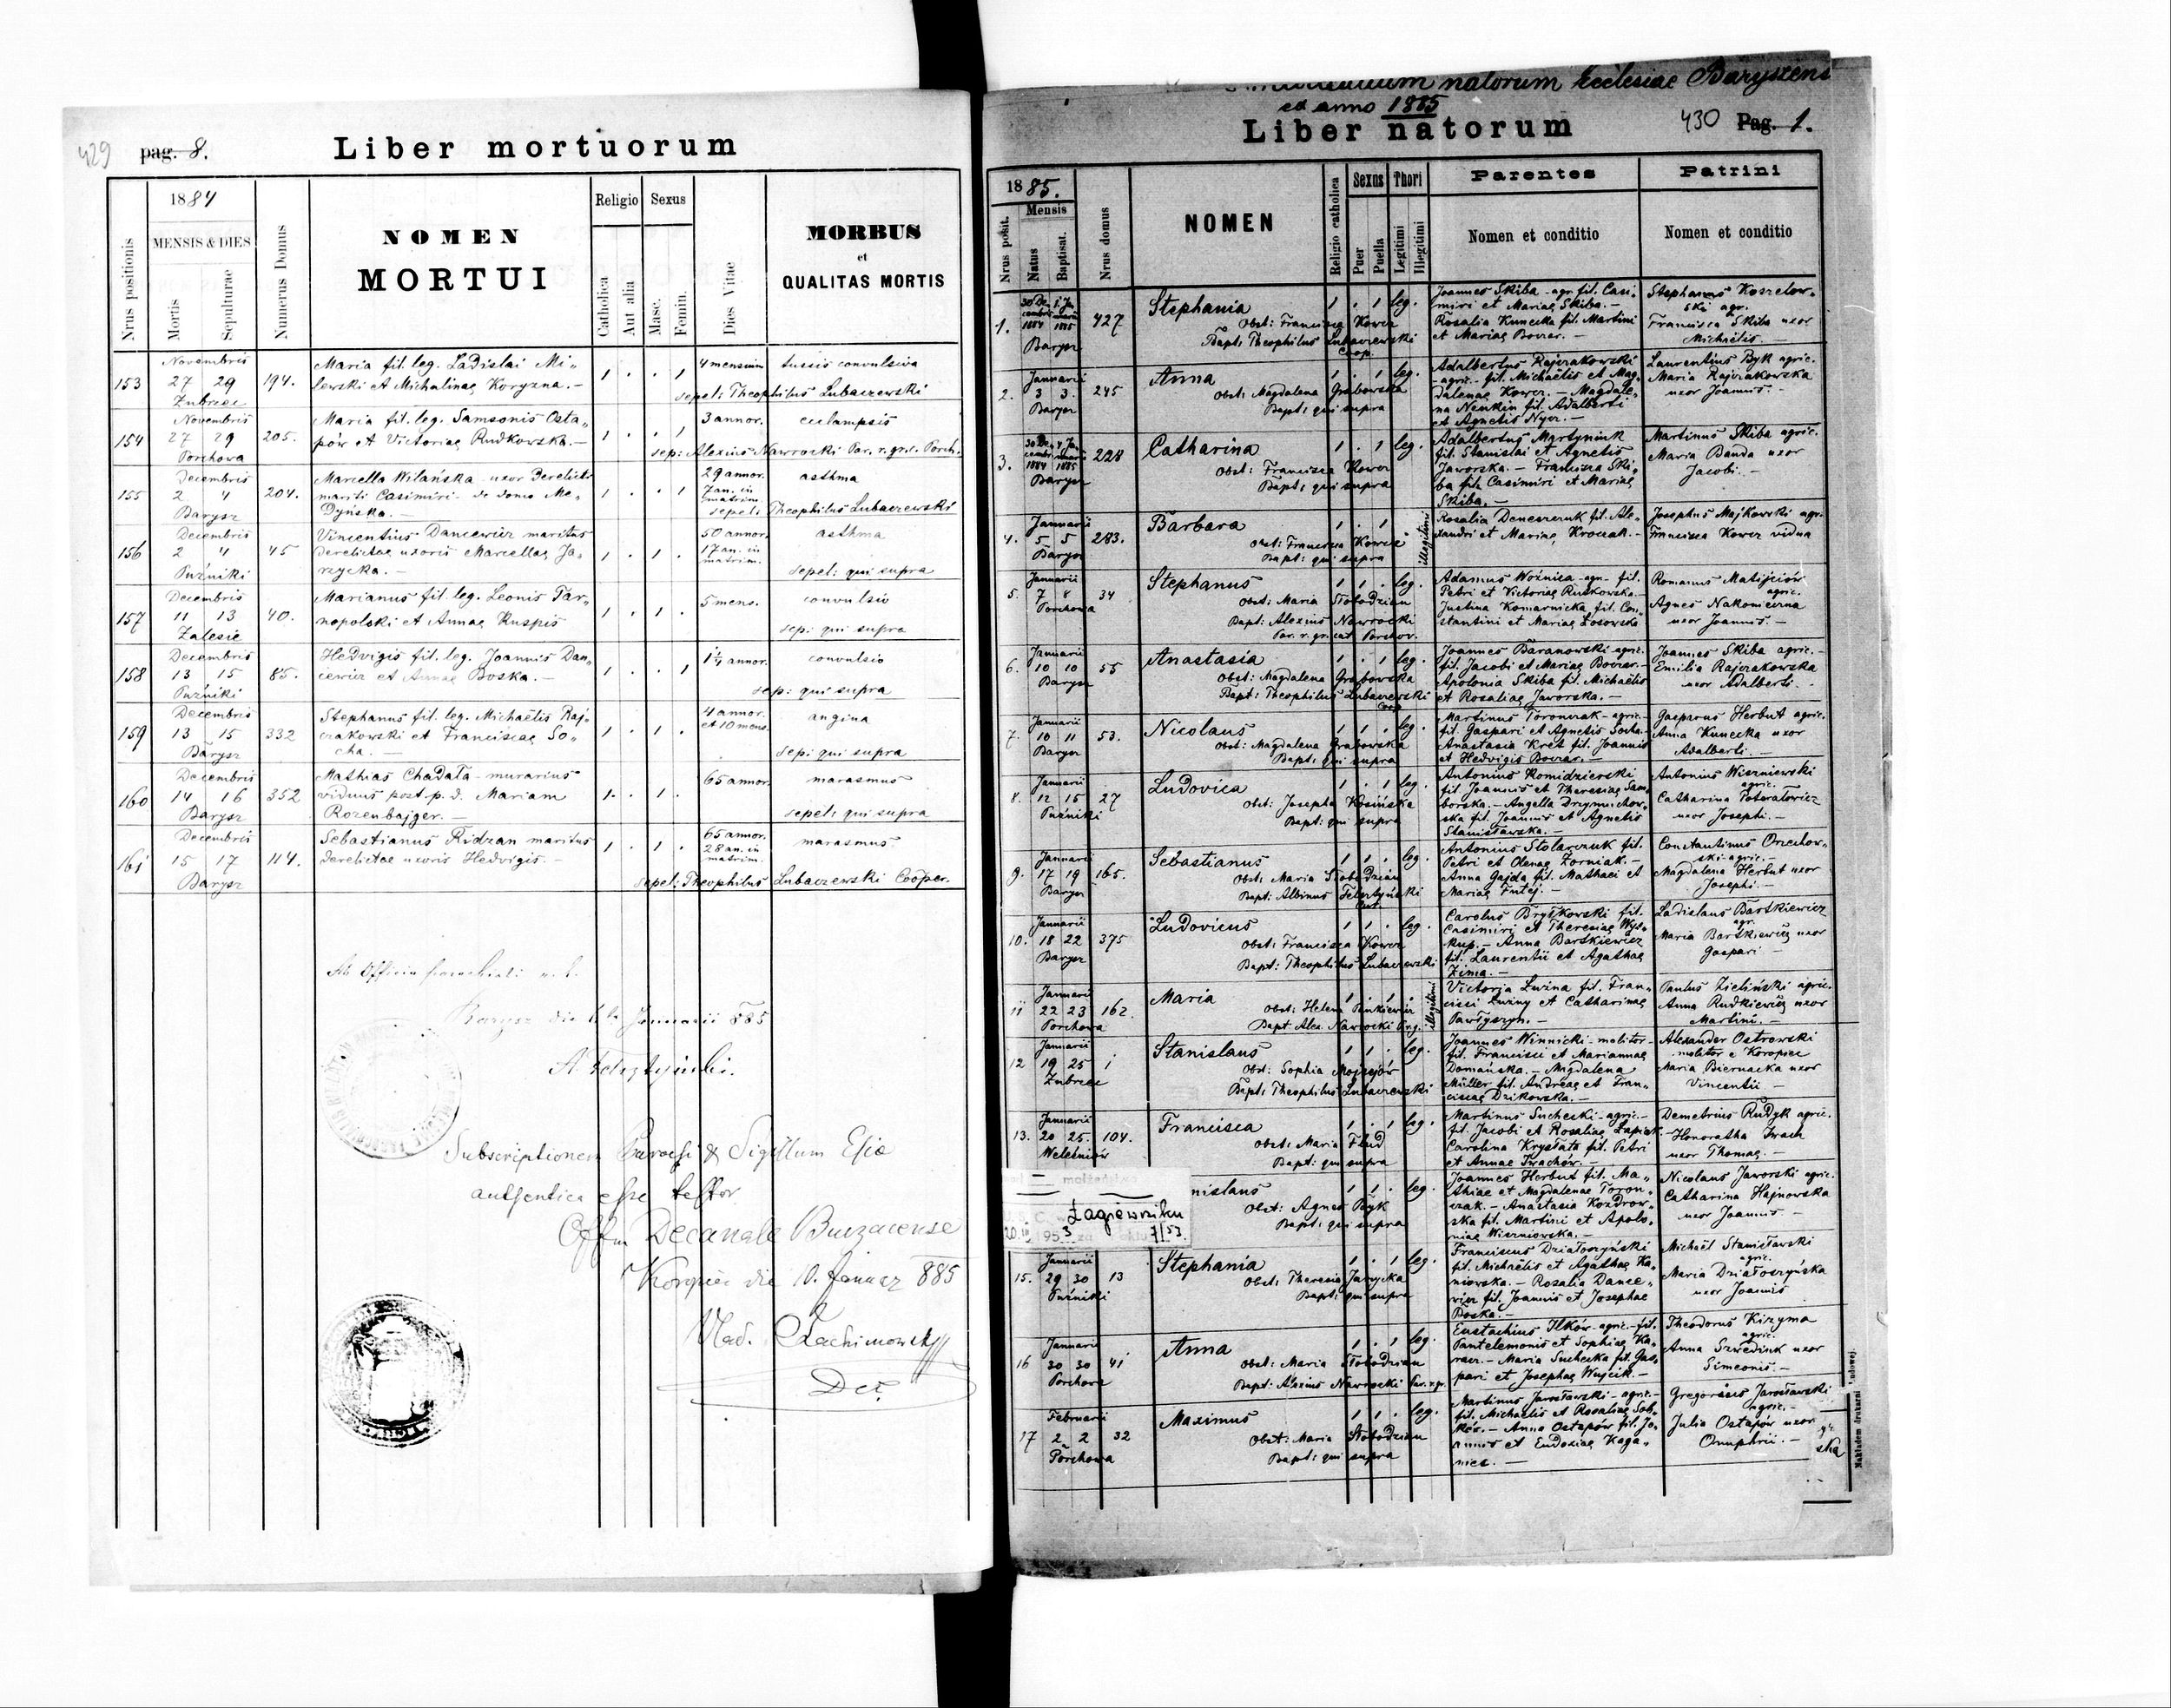 429 pag. 8.
Liber mortuorum
Nrus positionis
1884
MENSIS & DIES
Mortis
Sepulturae
Numerus Domus
NOMEN
MORTUI
Religio
Catholica
Aut alia
Sexus
Masc.
Femin.
Dies Vitae
MORBUS
et
QUALITAS MORTIS
153
Novembris
27 29
Zubrzec
194.
Maria fil. leg. Ladislai Mi-
lowski et Michalinae Koryzna.-
4 mensium
tussis convulsiva
sepel: Theophilus Lubaczewski
154
Novembris
27 29
Porchowa
205.
Maria fil. leg. Samsonis Osta-
pów et Victoriae Rudkowska.-
3 annor.
eclampsis
sep: Alexius Nawrocki Par. r. gr. c. Porch.
155
Decembris
2 4
Barysz
204.
Marcella Wilańska - uxor derelicti
mariti Casimiri - de domo Me-
dyńska.-
29 annor.
7 an. in
matrim.
asthma
sepel: Theophilus Lubaczewski
156
Decembris
2 4
Puźniki
45
Vincentius Dancewicz maritus
derelictae uxoris Marcellae Ja-
rzycka.-
50 annor.
17 an. in
matrim.
asthma
sepel: qui supra
157
Decembris
11 13
Zalesie
40.
Marianus fil. leg. Leonis Tar-
nopolski et Annae Kuspis
5 mens.
convulsio
sep: qui supra
158
Decembris
13 15
Puźniki
85.
Hedvigis fil. leg. Joannis Dan-
cewicz et Annae Boska.-
1¼ annor.
convulsio
sep: qui supra
159
Decembris
13 15
Barysz
332
Stephanus fil. leg. Michaëlis Raj-
czakowski et Franciscae So-
cha.-
4 annor.
et 10 mens.
angina
sep: qui supra
160
Decembris
14 16
Barysz
352
Mathias Chadała - murarius
viduus post p. d. Mariam
Rozenbajger.-
65 annor.
marasmus
sepel: qui supra
161
Decembris
15 17
Barysz
114.
Sebastianus Ridzan maritus
derelictae uxoris Hedvigis.-
65 annor.
28 an. in
matrim.
marasmus
sepel: Theophilus Lubaczewski Cooper.
Ab Officio parochiali r. l.
Barysz die Januarii 885
Subscriptionem Parochi & Sigillum Esse
authentica esse testor
Offm Decanale Buczacense
die 10. Januar 885
Dec.
natorum Ecclesiae Baryszens
ed anno 1885
Liber natorum
430 Pag. 1.
1885.
Nrus posit.
Mensis
Natus
Baptisat.
Nrus domus
NOMEN
Religio catholica
Sexus
Puer
Puella
Thori
Legitimi
Illegitimi
Parentes
Nomen et conditio
Patrini
Nomen et conditio
1.
30 De- 1. Ja-
cembris nuarii
1884 1885
Barysz
427
Stephania
Obst: Francisca Kowcz
Bapt: Theophilus Lubaczewski
Coop.
leg.
Joannes Skiba - agr. fil. Casi-
miri et Mariae Skiba.-
Rosalia Kunecka fil. Martini
et Mariae Boczar.-
Stephanus Koszelow-
ski agr.
Francisca Skiba uxor
Michaëlis.-
2.
Januarii
3 3.
Barysz
245
Anna
Obst: Magdalena Grabowska
Bapt: qui supra
leg.
Adalbertus Rajczakowski
- agric. - fil. Michaëlis et Mag-
dalenae Kowcz.- Magdale-
na Neukin fil. Adalberti
et Agnetis Nycz.-
Laurentius Byk agric.
Maria Rajczakowska
uxor Joannis.-
3.
30 De- 4 Ja-
cembris nuarii
1884 1885
Barysz
228
Catharina
Obst: Francisca Kowcz
Bapt: qui supra
leg.
Adalbertus Martyniuk
fil. Stanislai et Agnetis
Jaworska.- Francisca Ski-
ba fil. Casimiri et Mariae
Skiba.-
Martinus Skiba agric.
Maria Banda uxor
Jacobi.-
4.
Januarii
5 5
Barysz
283.
Barbara
Obst: Francisca Kowcz
Bapt: qui supra
illegitimi
Rosalia Deneszczuk fil. Ale-
xandri et Mariae Kroczak.-
Josephus Majkowski agr.
Francisca Kowcz vidua
5.
Januarii
7 8
Porchowa
34
Stephanus
Obst: Maria Słobodzian
Bapt: Alexius Nawrocki
Par. r. gr. cat Porchov.
leg.
Adamus Woźnica - agr. fil.
Petri et Victoriae Rutkowska.-
Justina Komarnicka fil. Con-
stantini et Mariae Łosowska
Romanus Matijciów
agric.
Agnes Nakonieczna
uxor Joannis.-
6.
Januarii
10 10
Barysz
55
Anastasia
Obst: Magdalena Grabowska
Bapt: Theophilus Lubaczewski
Coop
leg.
Joannes Baranowski agric.
fil. Jacobi et Mariae Boczar.-
Apolonia Skiba fil. Michaëlis
et Rosaliae Jaworska.-
Joannes Skiba agric.-
Emilia Rajczakowska
uxor Adalberti.
7.
Januarii
10 11
Barysz
53.
Nicolaus
Obst: Magdalena Grabowska
Bapt: qui supra
leg.
Martinus Toronczak - agric.-
fil. Gaspari et Agnetis Socha.-
Anastasia Kret fil. Joannis
et Hedvigis Boczar.-
Gasparus Herbut agric.
Anna Kunecka uxor
Adalberti.-
8.
Januarii
12 15
Puźniki
27
Ludovica
Obst: Josepha Kosińska
Bapt: qui supra
leg.
Antonius Romidzierski
fil Joannis et Theresiae Sam-
borska.- Angella Drzymuchow-
ska fil. Joannis et Agnetis
Stanisławska.-
Antonius Wiszniewski
agric.
Catharina Potorałowicz
uxor Josephi.-
9.
Januarii
17 19
Barysz
165.
Sebastianus
Obst: Maria Słobodzian
Bapt: Albinus Felsztyński
Cur.
leg.
Antonius Stolarczuk fil.
Petri et Olenae Żorniak.-
Anna Gajda fil. Mathaei et
Mariae Futej.-
Constantinus Orzechow-
ski agric.-
Magdalena Herbut uxor
Josephi.-
10.
Januarii
18 22
Barysz
375
Ludovicus
Obst: Francisca Kowcz
Bapt: Theophilus Lubaczewski
leg.
Carolus Bryłkowski fil.
Casimiri et Theresiae Wys-
kup.- Anna Bartkiewicz
fil. Laurentii et Agathae
Zima.-
Ladislaus Bartkiewicz
agr.
Maria Bartkiewicz uxor
Gaspari
11
Januarii
22 23
Porchowa
162.
Maria
Obst: Helena Pinkiewicz
Bapt Alex. Nawrocki Pr. g.
illegitimi
Victoria Luzina fil. Fran-
cisci Luziny et Catharinae
Pawłyszyn.-
Paulus Zieliński agric.
Anna Rudkiewicz uxor
Martini.-
12
Januarii
19 25
Zubrzec
1
Stanislaus
Obst: Sophia Mojzejów
Bapt: Theophilus Lubaczewski
leg.
Joannes Winnicki - molitor-
fil. Francisci et Mariannae
Domańska.- Magdalena
Müller fil. Andreae et Fran-
ciscae Dzikowska.-
Alexander Ostrowski
molitor e Koropiec
Maria Biernacka uxor
Vincentii -
13.
Januarii
20 25.
Weleśniów
104.
Francisca
Obst: Maria Flud
Bapt: qui supra
leg.
Martinus Suchecki - agric.-
fil. Jacobi et Rosaliae Łapiak.-
Carolina Kryształa fil. Petri
et Annae Krachów.-
Demetrius Rudyk agric.
Honoratha Krach
uxor Thomae.-
małżeństwo
Łagiewniku
20. 1953 za aktu 7/53
nislaus
Obst: Agnes Byk
Bapt: qui supra
leg.
Joannes Herbut fil. Ma-
thiae et Magdalenae Toron-
czak.- Anastasia Kozdrow-
ska fil. Martini et Apolo-
niae Wiszniowska.-
Nicolaus Jaworski agric.
Catharina Hajnowska
uxor Joannis -
15.
Januarii
29 30
Puźniki
13
Stephania
Obst: Theresia Jarycka
Bapt: qui supra
leg.
Franciscus Działoszyński
fil. Michaëlis et Agathae Ka-
niowska.- Rosalia Dance-
wicz fil. Joannis et Josephae
Boska.-
Michaël Stanisławski
agric.
Maria Działoszyńska
uxor Joannis
16
Januarii
30 30
Porchowa
41
Anna
Obst: Maria Słobodzian
Bapt: Alexius Nawrocki Par. r. gr.
leg.
Eustachius Ilków - agric. - fil.
Pantelemonis et Sophiae Ka-
racz.- Maria Suchecka fil. Gas-
pari et Josephae Wujcik.-
Theodorus Kizyma
agric.
Anna Szwedink uxor
Simeonis.-
17
Februarii
2 2
Porchowa
32
Maximus
Obst: Maria Słobodzian
Bapt: qui supra
leg.
Martinus Jarosławski - agric.-
fil. Michaëlis et Rosaliae Sob-
ków.- Anna Ostapów fil. Jo-
annis et Eudoxiae Kaga-
niec.-
Gregorius Jarosławski
agric.-
Julia Ostapów uxor
Onuphrii.-
ska
Nakładem drukarni Ludowej.